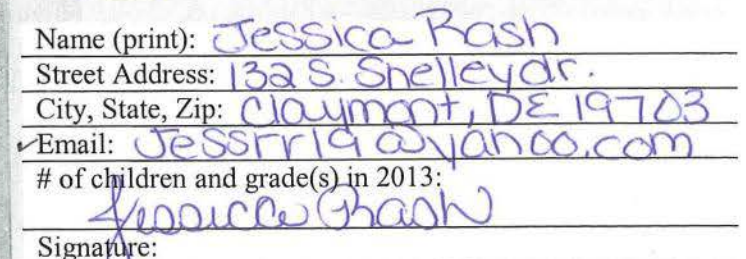 Name (print): Jessica Rash
Street Address: 132 S. Shelley dr.
City, State, Zip: Claymont, DE 19703
✓Email: Jessrr19@yahoo.com
# of children and grade(s) in 2013:
Jessica Rash
Signature: